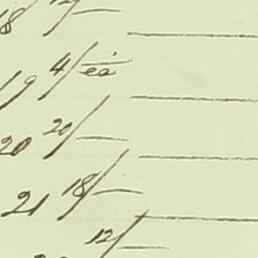 18
19 4/ ea
20 20/—
21 18/—
12/—